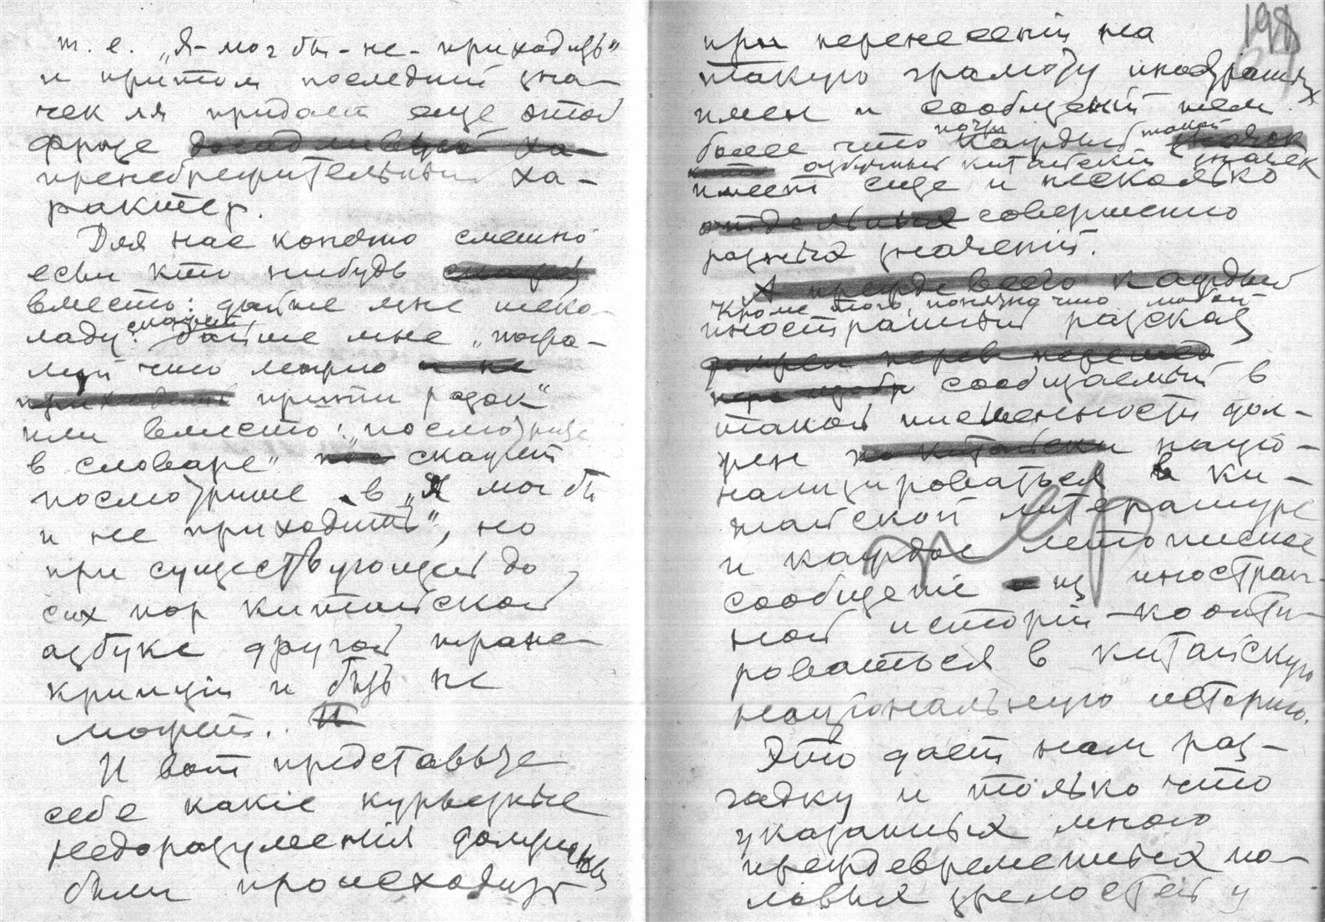 т. е. „Я-мог бы-не-приходить“
и притом последний зна-
чек ля придает еще этой
фразе ха-
пренебрежительный ха-
рактер.
Для нас конечно смешно
если кто нибудь
вместо: дайте мне шеко-
ладу скажет: дайте мне „пожа-
луй чисо летрио
притти разок“
или вместо: посмотрите
в словаре“ скажет
посмотрите в „Я мог бы
и не приходить“, но
при существующей до
сих пор китайской
азбуке другой транс-
крипцiи и быть не
может..
И вот представьте
себе какiе курьезные
недоразуменiя должны
были происходить
198
при перенесенiи на
такую грамоту иностранных
имен и сообщенiй тем
более что почти каждый такой
азбучный китайскiй значек
имеет еще и несколько
совершенно
разных значенiй.
А прежде всего каждый
Кроме того понятно что любой
иностранный разсказ
сообщаемый в
такой письменности дол-
жен нацiо-
нализироваться в ки-
тайской литературе
и каждое летописное
сообщенiе из иностран-
ной исторiи – коопти-
роваться в китайскую
нацiональную исторiю.
Это дает нам раз-
гадку и только что
указанных много
преждевременных по-
ловых зрелостей у